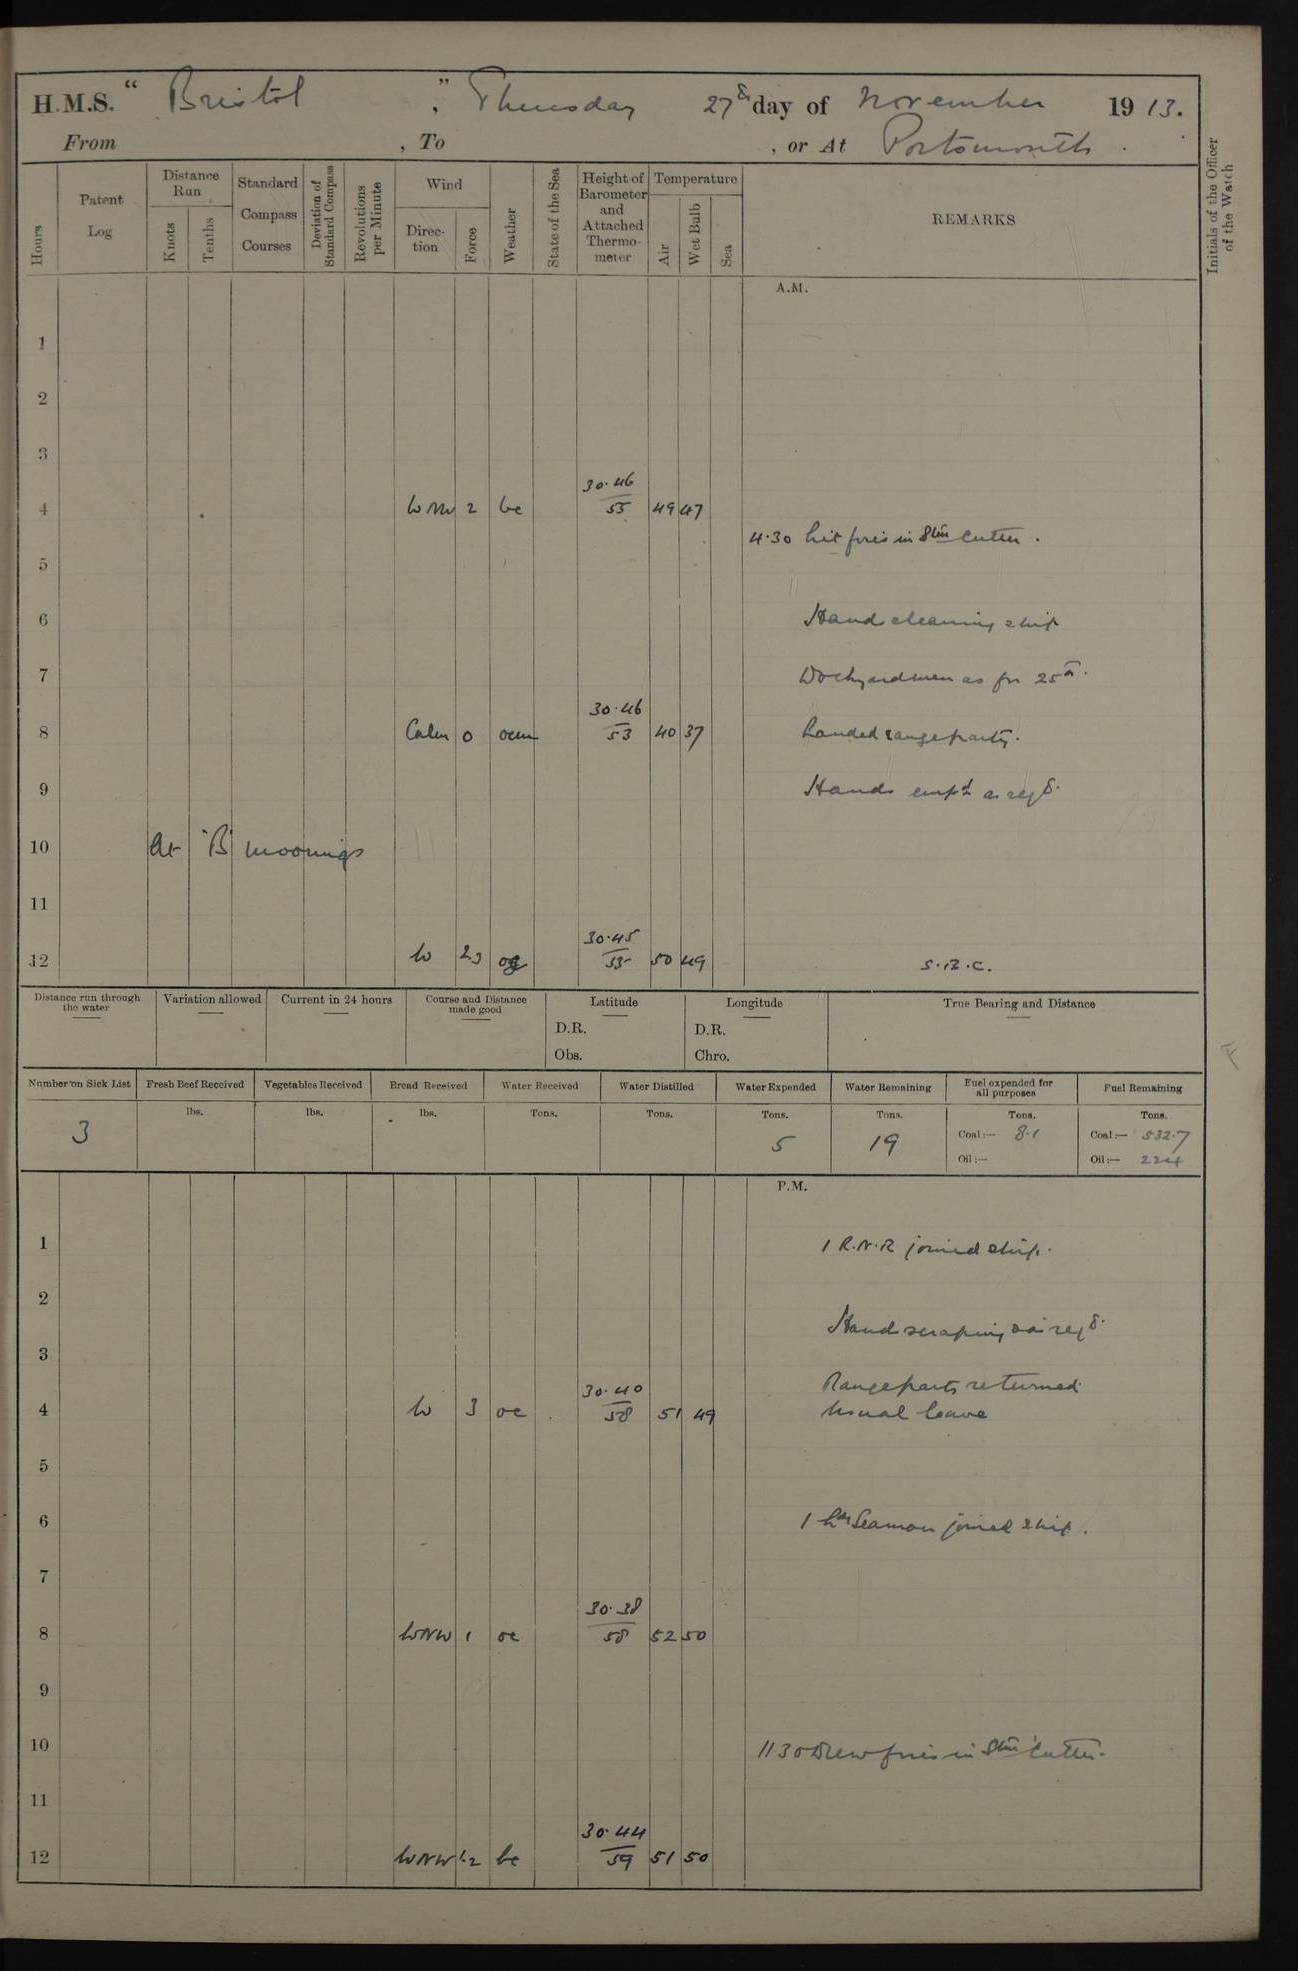 H.M.S. " Bristol ", Thursday 27th day of November 1913.
From , To , or At Portsmouth .
Hours
Patent Log
Distance Run
Knots
Tenths
Standard Compass Courses
Deviation of Standard Compass
Revolutions per Minute
Wind
Direction
Force
Weather
State of the Sea
Height of Barometer and Attached Thermometer
Temperature
Air
Wet Bulb
Sea
REMARKS
Initials of the Officer of the Watch
A.M.
1
2
3
4 WNW 2 bc 30.46 55 49 47
4.30 Lit fires in Stm Cutter.
5
6 Hands cleaning ship
7 Dockyardmen as for 25th.
8 Calm 0 ocm 30.46 53 40 37 Landed range party.
9 Hands empd as reqd.
10 At "B" moorings
11
12 W 2.3 og 30.45 55 50 49 S.B.C.
Distance run through the water
Variation allowed
Current in 24 hours
Course and Distance made good
Latitude
D.R.
Obs.
Longitude
D.R.
Chro.
True Bearing and Distance
Number on Sick List
Fresh Beef Received
Vegetables Received
Bread Received
Water Received
Water Distilled
Water Expended
Water Remaining
Fuel expended for all purposes
Fuel Remaining
lbs. lbs. lbs. Tons. Tons. Tons. Tons. Tons. Tons.
3 5 19 Coal:— 8.1 Coal:— 532.7
Oil:— Oil:— 224
P.M.
1 1 R.N.R joined ship.
2
Hands scraping & as reqd.
3
Range party returned
4 W 3 oc 30.40 58 51 49 Usual leave
5
6 1 Ldg Seaman joined ship.
7
8 WNW 1 oc 30.38 58 52 50
9
10 11.30 Drew fires in Stm Cutter.
11
12 WNW 1.2 bc 30.44 59 51 50